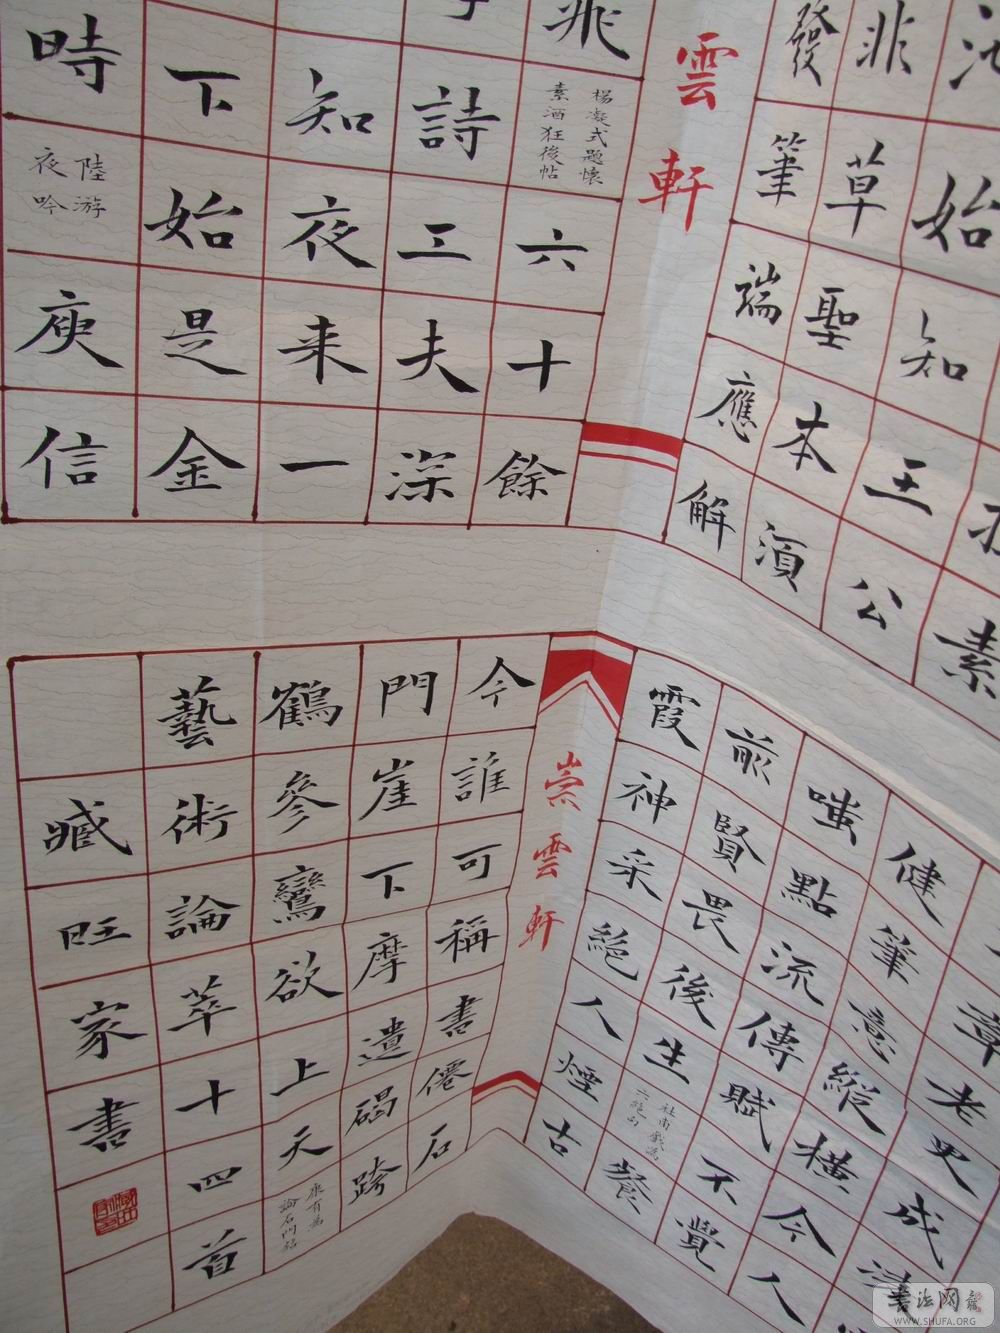 素
始知王公
非草聖本須
發筆端應解
雲軒
飛
楊凝式題懷
素酒狂後帖
六十餘
詩工夫深
知夜來一
下始是金
時
陸游
夜吟
庾信
章老更成
健筆意縱橫今人
嗤點流傳賦不覺
前賢畏後生
杜甫戲為
六絕句
餐
霞神采絕人煙古
崇雲軒
今誰可稱書僊石
門崖下摩遺碣跨
鶴參鸞欲上天
康有為
論石門銘
藝術論萃十四首
臧旺家書
書法网
WWW.SHUFA.ORG